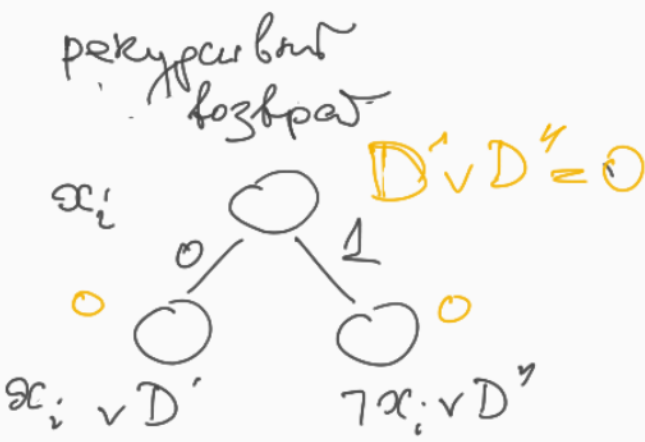 рекурсивный
возврат
D' ∨ D" = 0
xᵢ
0 1
0 0
xᵢ ∨ D' ¬xᵢ ∨ D"